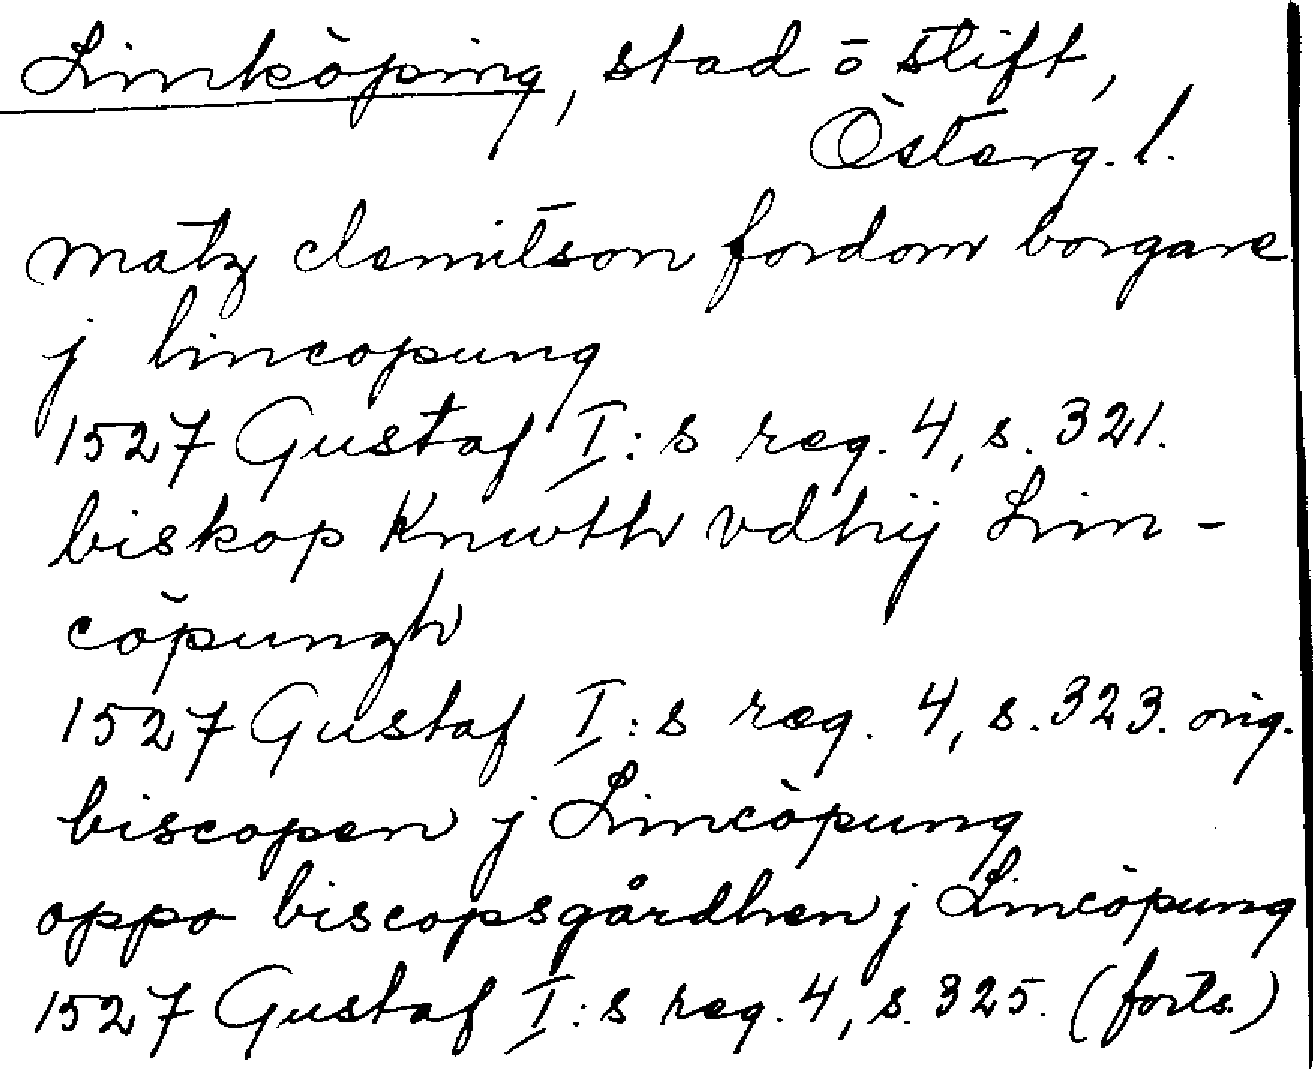 Linköping, stad o stift,
Österg. l.
matz clemitson fordom borgare
j lincopung
1527 Gustaf I:s reg. 4, s. 321.
biskop Knwth vdhij Lin-
cöpungh
1527 Gustaf I:s reg. 4, s. 323. orig.
biscopen j Lincöpung
oppo biscopsgårdhen j Lincöpung
1527 Gustaf I:s reg. 4, s. 325. (forts.)